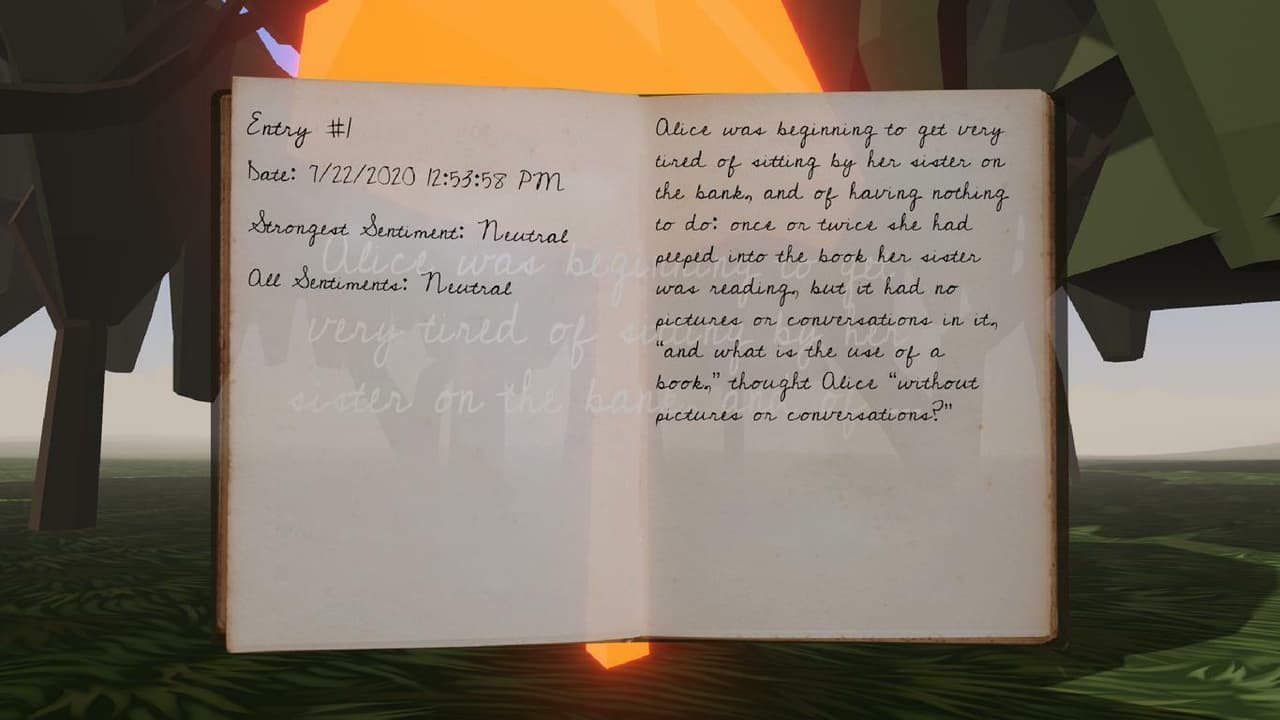 Entry #1
Date: 7/22/2020 12:53:58 PM
Strongest Sentiment: Neutral
All Sentiments: Neutral
Alice was beginning to get very
tired of sitting by her sister on
the bank, and of having nothing
to do: once or twice she had
peeped into the book her sister
was reading, but it had no
pictures or conversations in it,
“and what is the use of a
book,” thought Alice “without
pictures or conversations?”
Alice was beginning to get
very tired of sitting by her
sister on the bank, and of